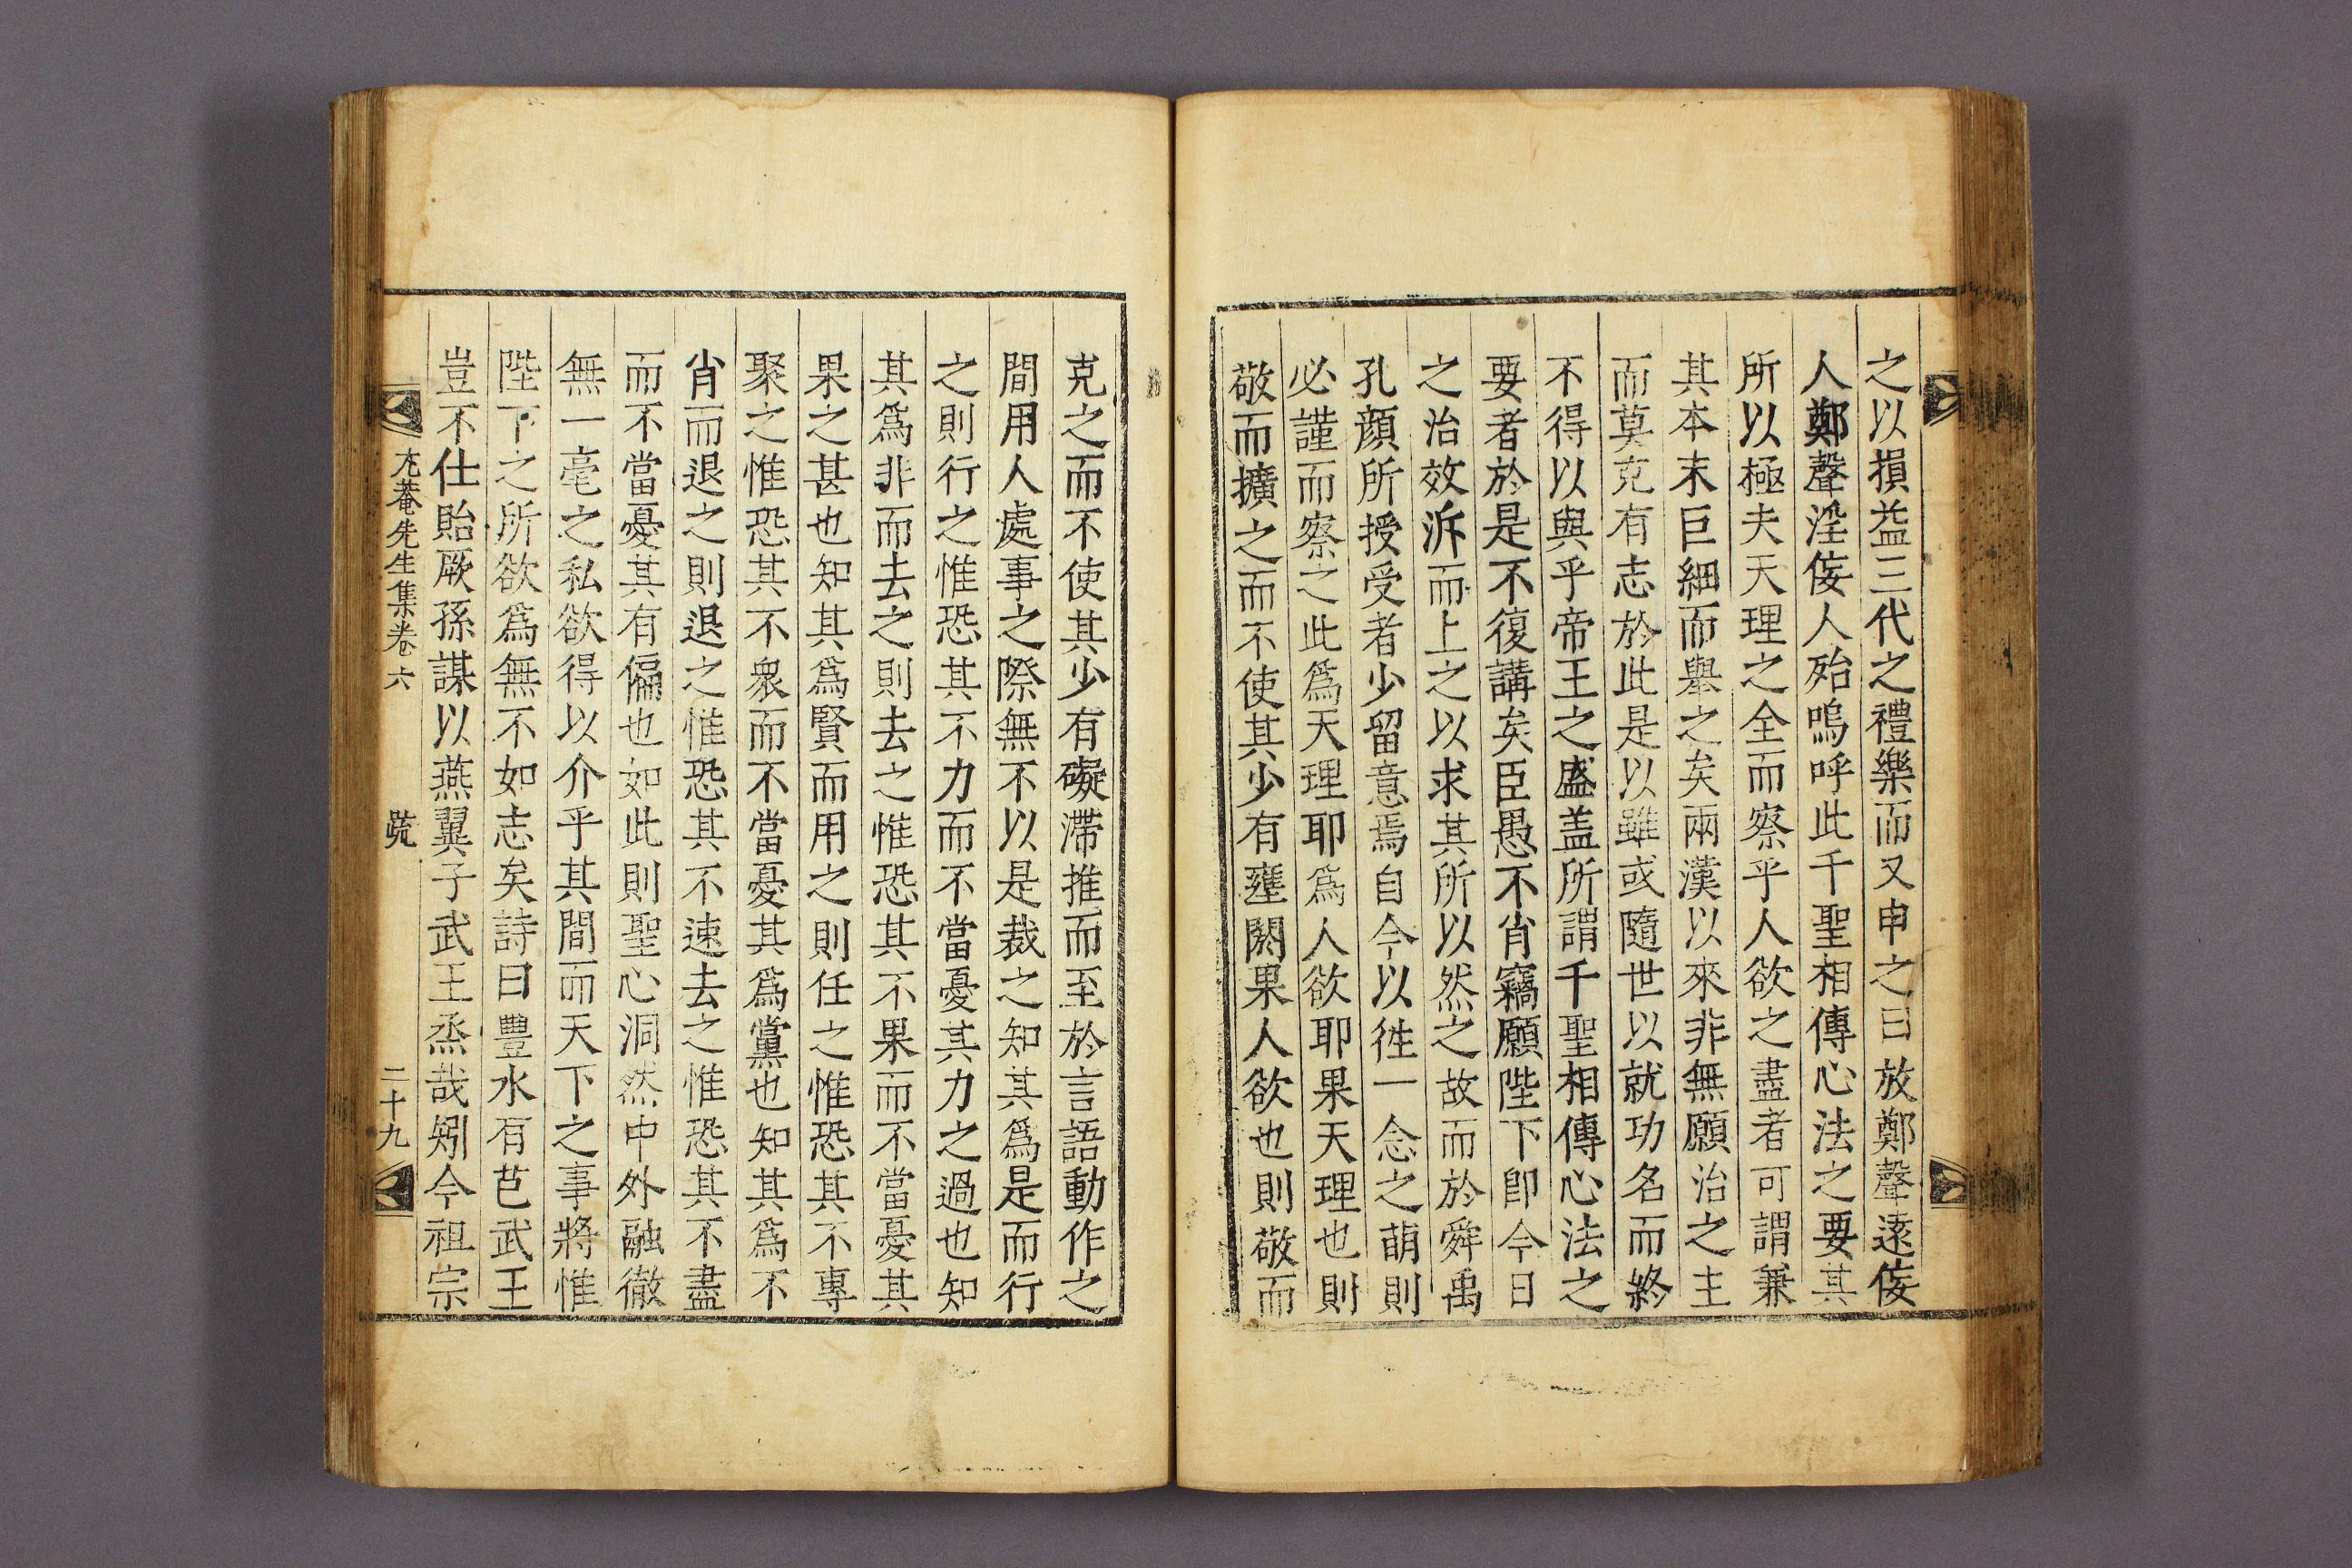 之以損益三代之禮樂而又申之曰放鄭聲遠侫
人鄭聲淫侫人殆嗚呼此千聖相傳心法之要其
所以極夫天理之全而察乎人欲之盡者可謂兼
其本末巨細而舉之矣兩漢以來非無願治之主
而莫克有志於此是以雖或隨世以就功名而終
不得以與乎帝王之盛盖所謂千聖相傳心法之
要者於是不復講矣臣愚不肖竊願陛下卽今日
之治效泝而上之以求其所以然之故而於舜禹
孔顔所授受者少留意焉自今以徃一念之萌則
必謹而察之此爲天理耶爲人欲耶果天理也則
敬而擴之而不使其少有壅閼果人欲也則敬而
克之而不使其少有礙滯推而至於言語動作之
間用人處事之際無不以是裁之知其爲是而行
之則行之惟恐其不力而不當憂其力之過也知
其爲非而去之則去之惟恐其不果而不當憂其
果之甚也知其爲賢而用之則任之惟恐其不專
聚之惟恐其不衆而不當憂其爲黨也知其爲不
肖而退之則退之惟恐其不速去之惟恐其不盡
而不當憂其有偏也如此則聖心洞然中外融徹
無一毫之私欲得以介乎其間而天下之事將惟
陛下之所欲爲無不如志矣詩曰豐水有芑武王
豈不仕貽厥孫謀以燕翼子武王烝哉矧今祖宗
尤菴先生集卷六 䟽 二十九